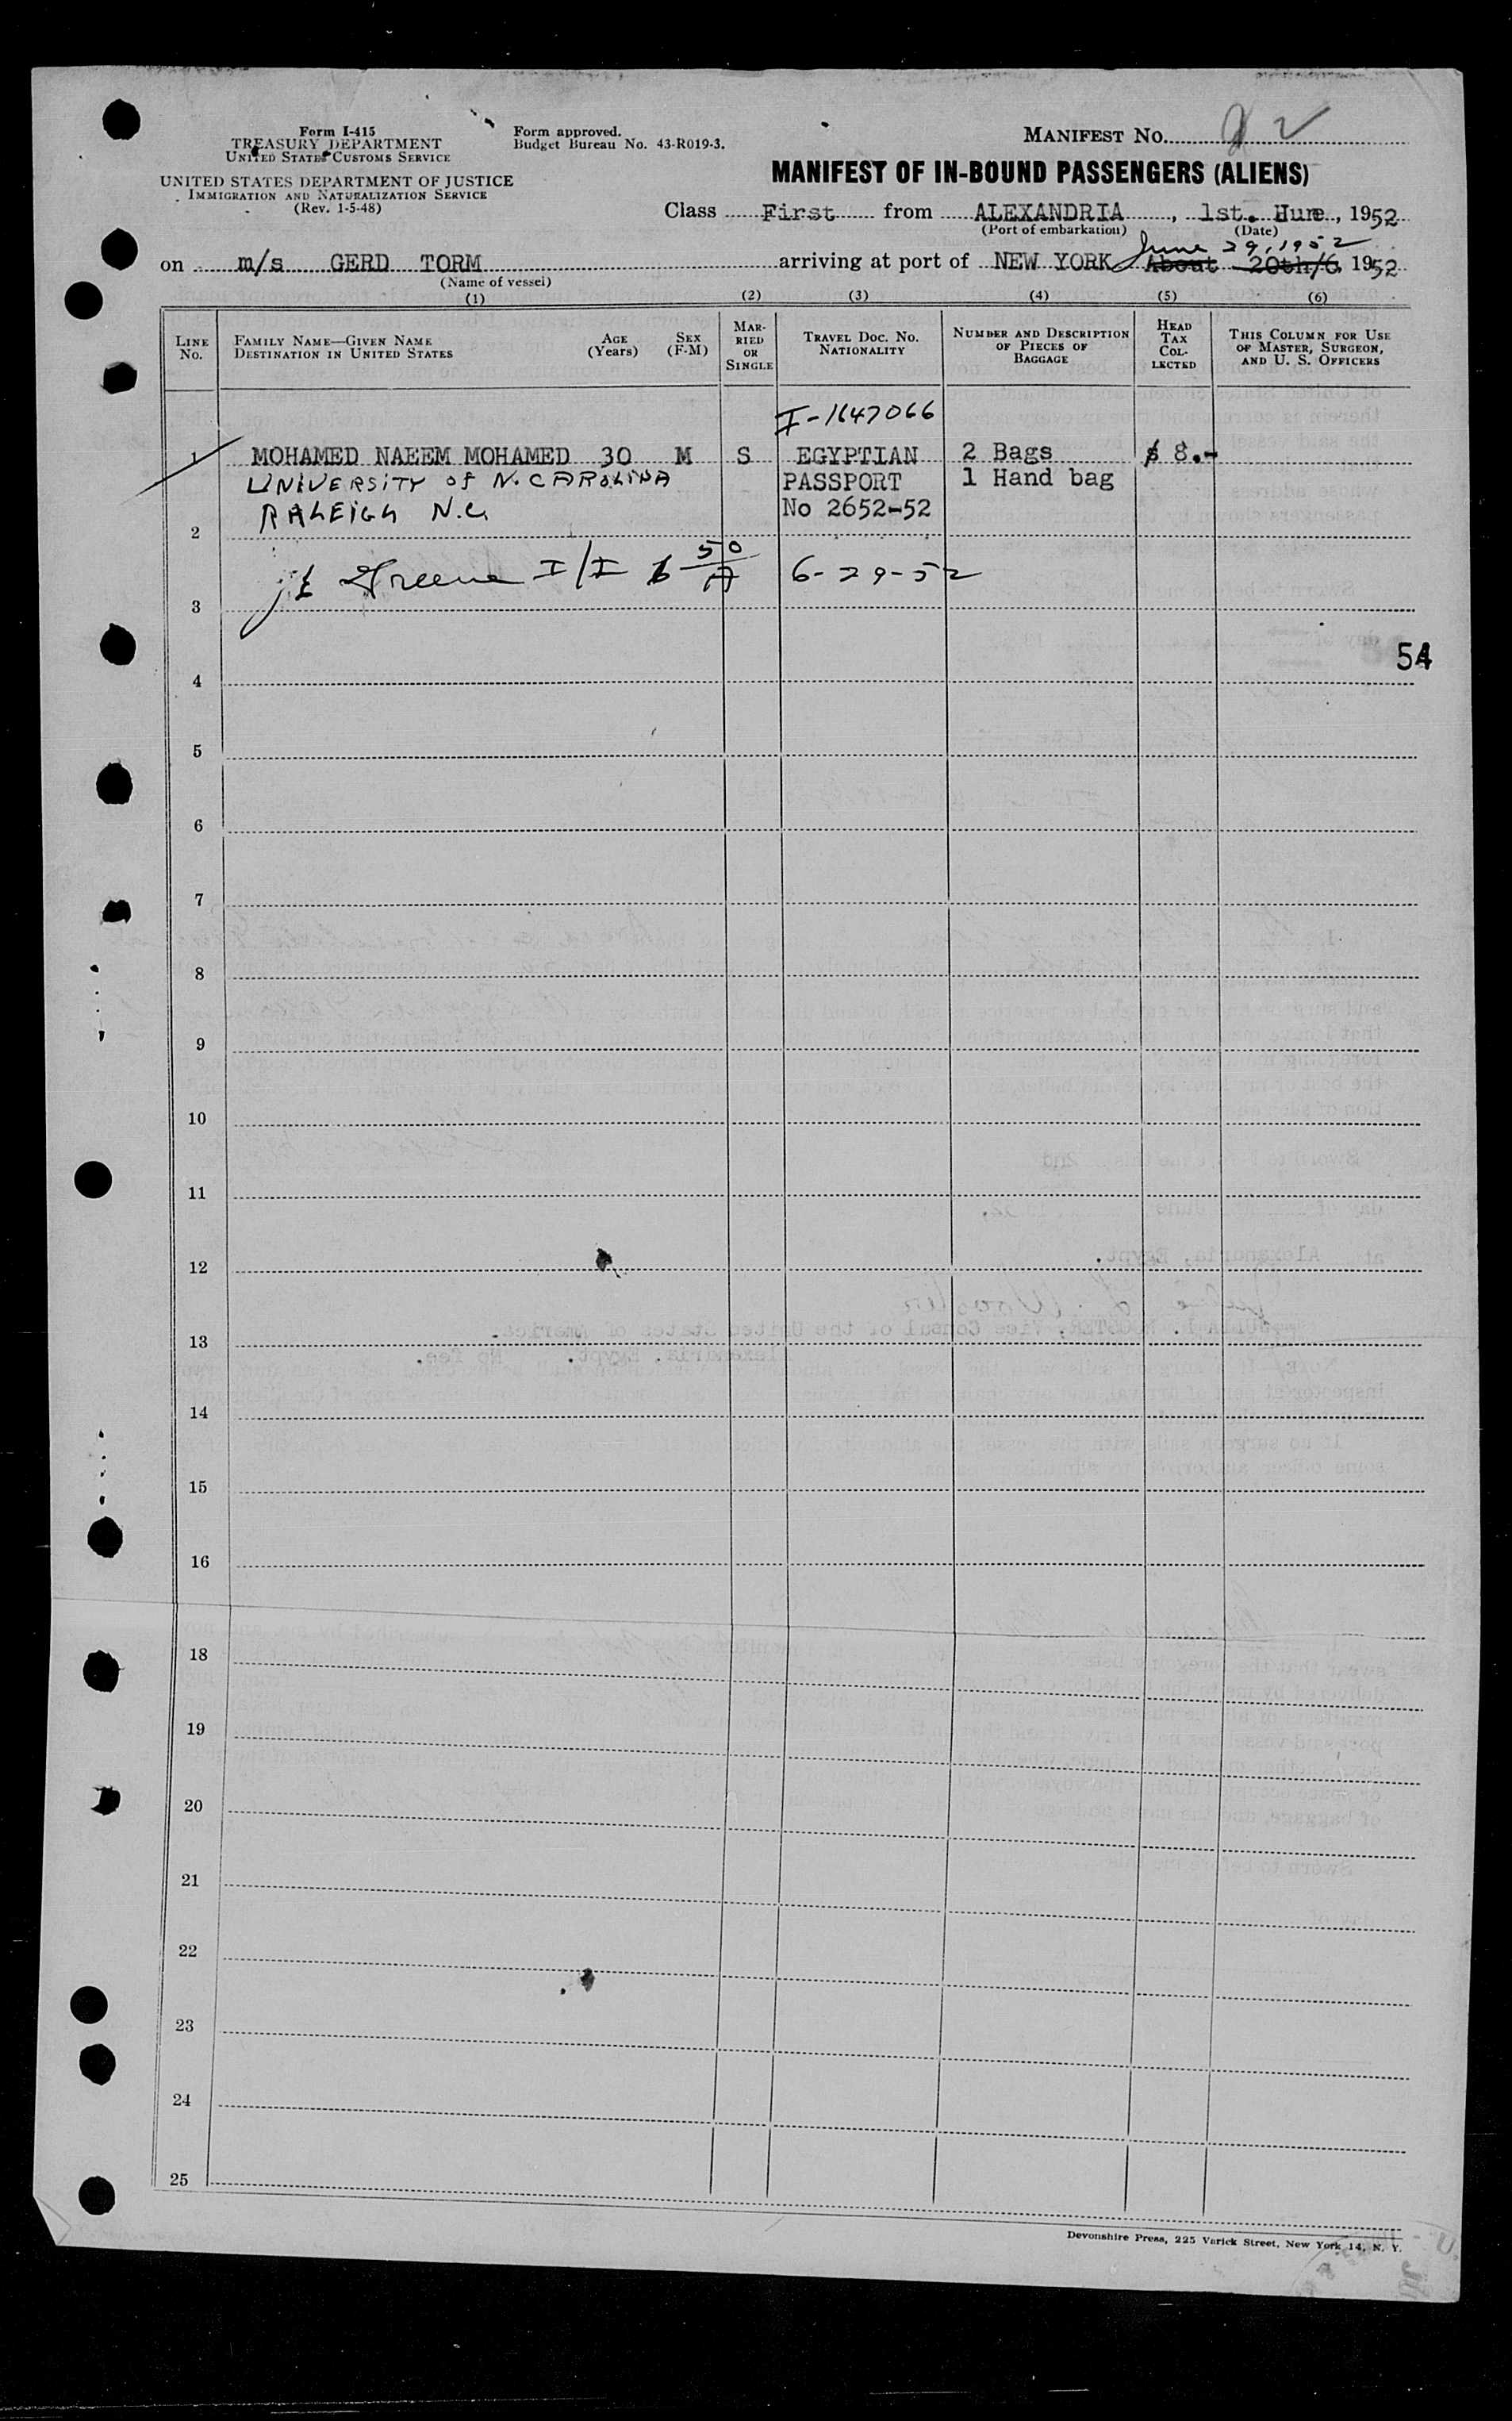 Form I-415
TREASURY DEPARTMENT
UNITED STATES CUSTOMS SERVICE
UNITED STATES DEPARTMENT OF JUSTICE
IMMIGRATION AND NATURALIZATION SERVICE
(Rev. 1-5-48)
Form approved.
Budget Bureau No. 43-R019-3.
MANIFEST NO. 2
MANIFEST OF IN-BOUND PASSENGERS (ALIENS)
Class First from ALEXANDRIA, 1st. Hune, 1952
(Port of embarkation) (Date)
June 29, 1952
on m/s GERD TORM arriving at port of NEW YORK About 20th/6 1952
(Name of vessel)
(1) (2) (3) (4) (5) (6)
LINE NO.
FAMILY NAME—GIVEN NAME
DESTINATION IN UNITED STATES
AGE
(Years)
SEX
(F-M)
MAR-
RIED
OR
SINGLE
TRAVEL DOC. NO.
NATIONALITY
NUMBER AND DESCRIPTION
OF PIECES OF
BAGGAGE
HEAD
TAX
COL-
LECTED
THIS COLUMN FOR USE
OF MASTER, SURGEON,
AND U. S. OFFICERS
I-1647066
1 MOHAMED NAEEM MOHAMED 30 M S EGYPTIAN 2 Bags $ 8.-
UNIVERSITY of N. CAROLINA PASSPORT 1 Hand bag
RALEIGH N.C. No 2652-52
2
Greene I/I 50 A 6-29-52
3
54
4
5
6
7
8
9
10
11
12
13
14
15
16
18
19
20
21
22
23
24
25
Devonshire Press, 225 Varick Street, New York 14, N. Y.